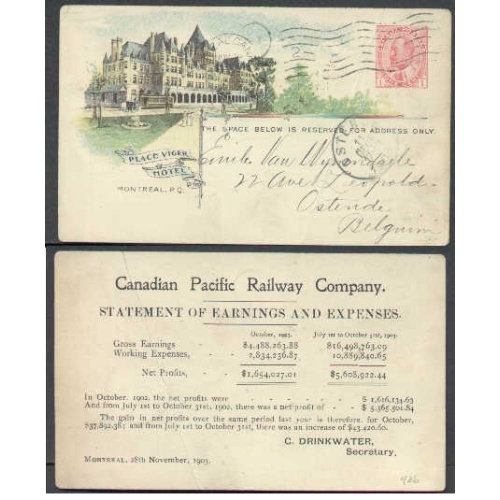 THE SPACE BELOW IS RESERVED FOR ADDRESS ONLY.
PLACE VIGER
HOTEL
MONTREAL, P.Q.
Emile Van
22 Ave Leopold
Ostende
Belgium
Canadian Pacific Railway Company.
STATEMENT OF EARNINGS AND EXPENSES.
October, 1903. July 1st to October 31st, 1903.
Gross Earnings - - $4,488,263.88 $16,498,763.09
Working Expenses, - - 2,834,236.87 10,889,840.65
Net Profits, - - $1,654,027.01 $5,608,922.44
In October, 1902, the net profits were - - - $ 1,616,134.63
And from July 1st to October 31st, 1902, there was a net profit of - $ 5,565,501.84
The gain in net profits over the same period last year is therefore, for October,
$37,892.38; and from July 1st to October 31st, there was an increase of $43,420.60.
C. DRINKWATER,
Secretary.
MONTREAL, 28th November, 1903.
926